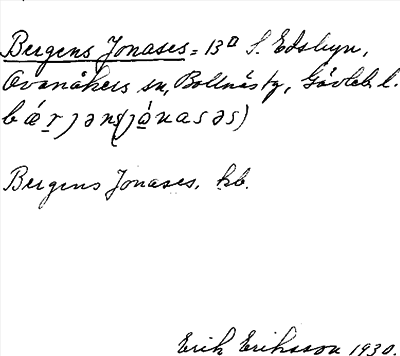 Bergens Jonases = 13¤ S. Edsbyn,
Ovanåkers sn, Bollnäs tg, Gävleb. l.
bæ̀rjəns(jònasəs)
Bergens Jonases, kb.
Erik Eriksson 1930.